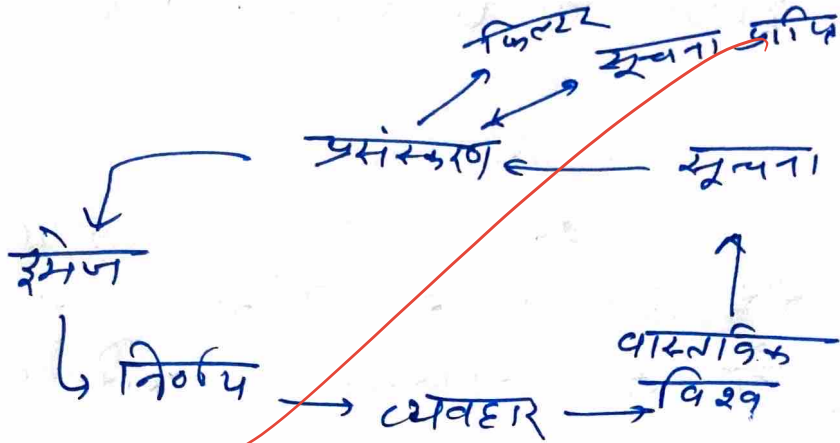 फिल्टर
सूचना प्राप्ति
प्रसंस्करण
सूचना
इमेज
निर्णय
व्यवहार
वास्तविक
विश्व